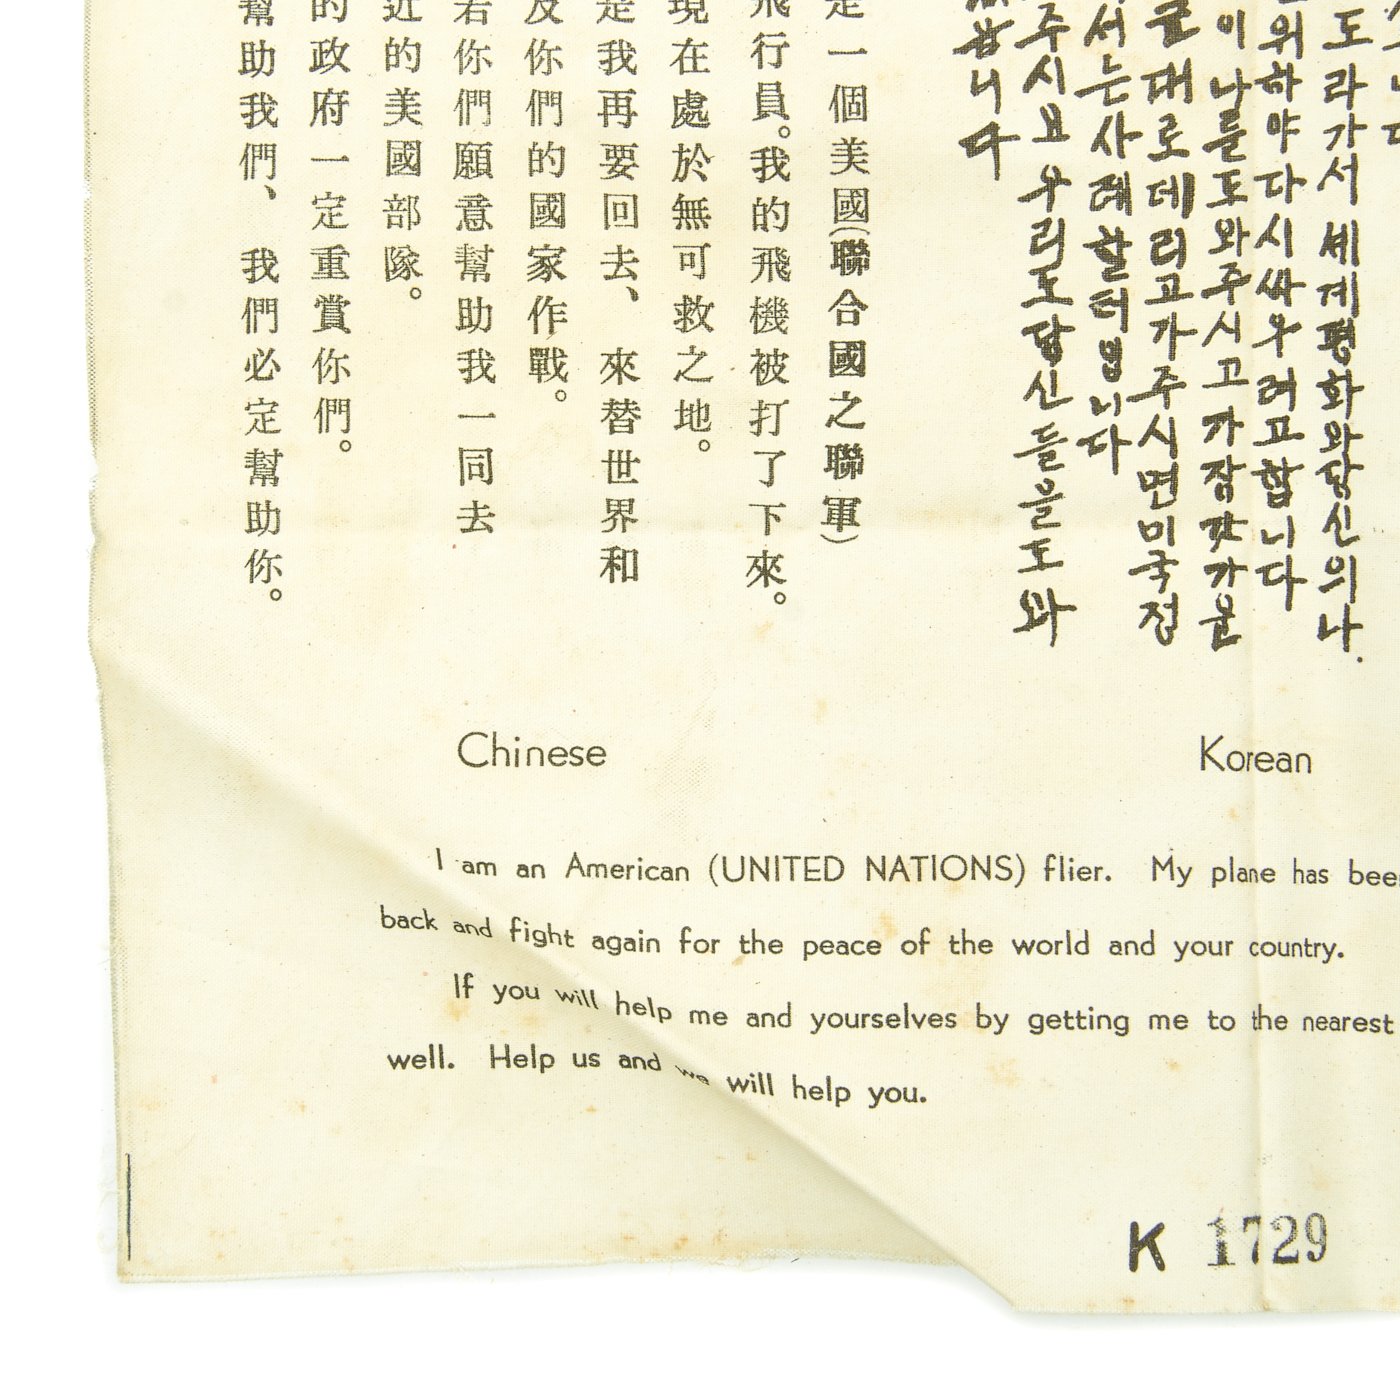 도라가서 세계평화와당신의나.
위하야다시싸우려고합니다
이나를도와주시고가장갓가운
대로데리고가주시면미국정
서는사례할터입니다
주시요우리도당신들을도와
니다
是一個美國(聯合國之聯軍)
飛行員。我的飛機被打了下來。
現在處於無可救之地。
是我再要回去、來替世界和
及你們的國家作戰。
若你們願意幫助我一同去
近的美國部隊。
的政府一定重賞你們。
幫助我們、我們必定幫助你。
Chinese
Korean
I am an American (UNITED NATIONS) flier. My plane has been
back and fight again for the peace of the world and your country.
If you will help me and yourselves by getting me to the nearest
well. Help us and we will help you.
K 1729